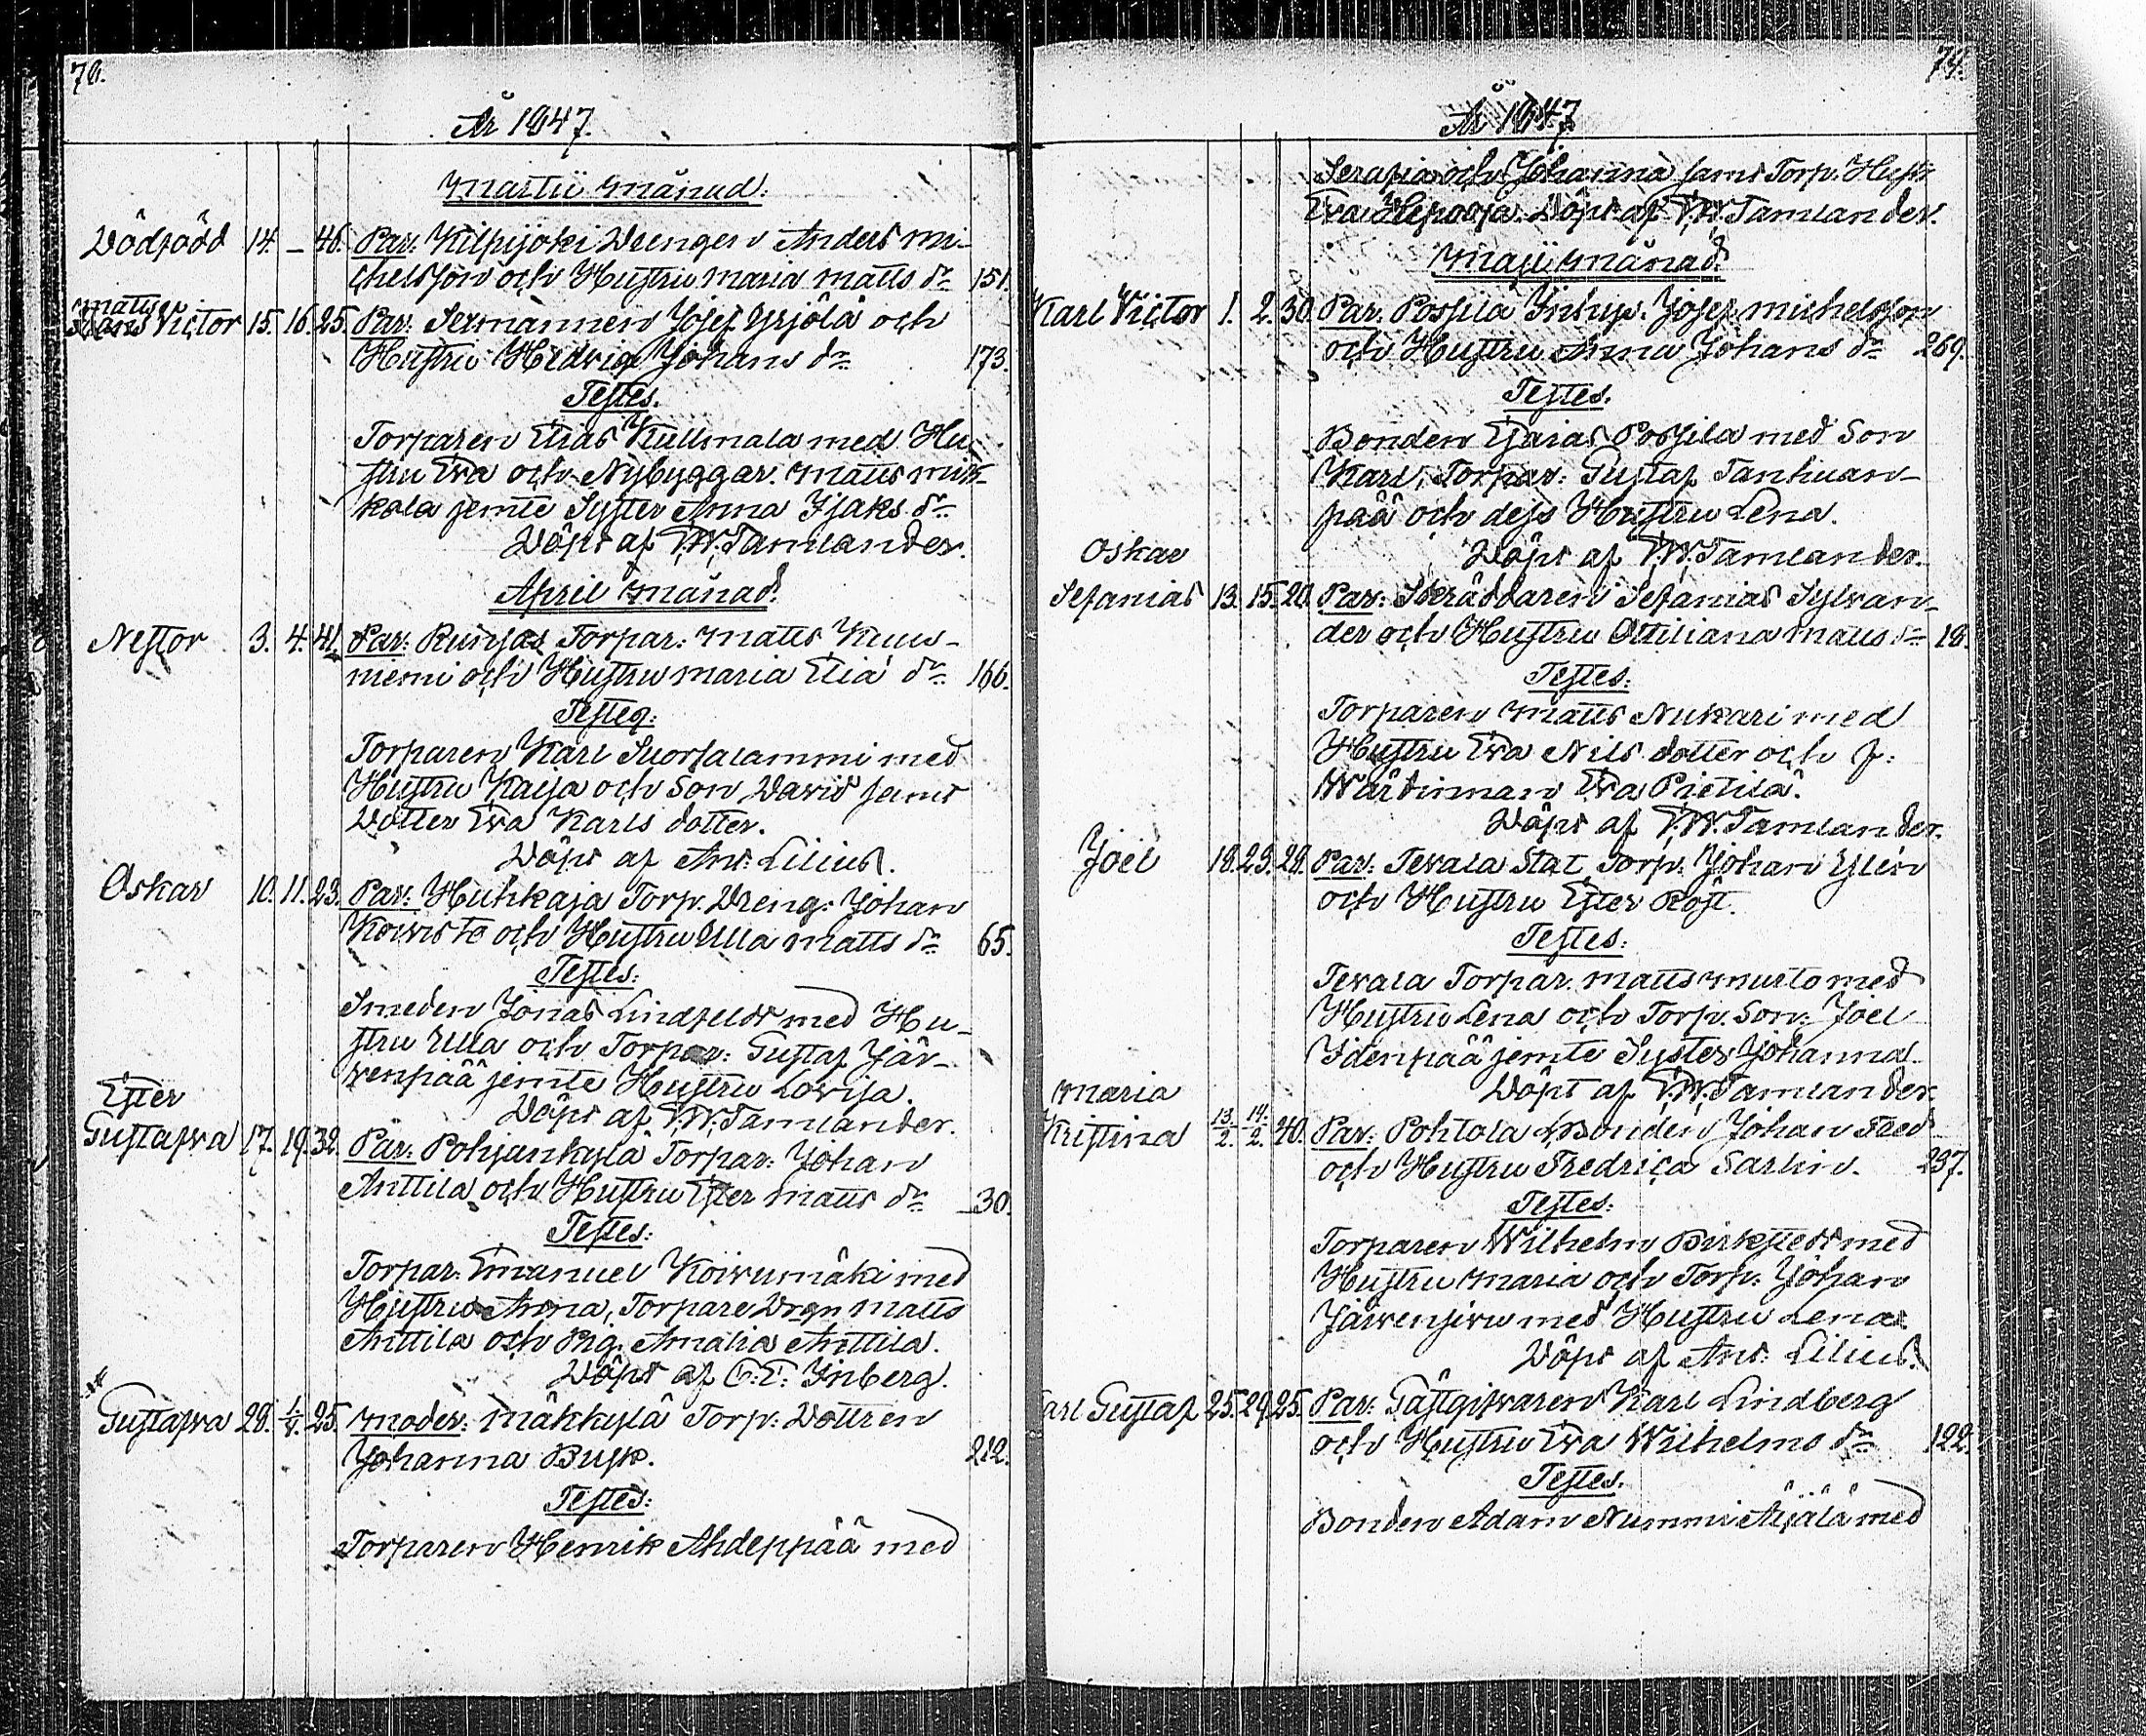 70.
År 1847.
Martii månad:
Dödfödd 14. – 46. Par: Kilpijoki Drengen Anders Mi-
chelsson och Hustru Maria Matts dr 151.
Matts
Victor 15. 16. 25. Par: Sexmannen Josef Yrjölä och
Hustru Hedvig Johans dr 173.
Testes.
Torparen Elias Kullmala med Hu-
stru Eva och Nybyggar. Matts Mik-
kola jemte Syster Anna Isaks dr
Döpt af F.W. Tamlander.
April månad.
Nestor 3. 4. 41. Par: Ruinjas Torpar: Matts Kuus-
niemi och Hustru Maria Elia dr 166.
Testes:
Torparen Karl Suorsalammi med
Hustru Kaisa och Son David samt
Dotter Eva Karls dotter.
Döpt af And: Lilius.
Oskar 10. 11. 23. Par: Huhkaja Torp. Dreng: Johan
Koivisto och Hustru Ulla Matts dr 65.
Testes:
Smeden Jonas Lindfeldt med Hu-
stru Ulla och Torpar: Gustaf Jär-
venpää jemte Hustru Lovisa.
Döpt af F.W. Tamlander.
Ester
Gustafva 17. 19. 32. Par: Pohjankylä Torpar: Johan
Anttila och Hustru Ester Matts dr 30.
Testes:
Torpar: Emanuel Koivumäki med
Hustru Anna, Torpare Drgn Matts
Anttila och Pig. Amalia Anttila.
Döpt af C. E. Inberg.
Gustafva 28. 1/5. 25. Moder: Mäkkylä Torp: Dottren
Johanna Busk. 212.
Testes:
Torparen Henrik Ahdeppää med
71.
År 1847
Serafia och Johanna samt Torp. Hustr
Eva Hepooja. Döpt af F.W. Tamlander.
Maji månad:
Karl Victor 1. 2. 30. Par: Possila Inhys. Josef Michelsson
och Hustru Anna Johans dr 269.
Testes.
Bonden Esaias Possila med Son
Karl, Torpar: Gustaf Tanhuan-
pää och dess Hustru Lena.
Döpt af F.W. Tamlander.
Oskar
Sefanias 13. 15. 20. Par: Skräddaren Sefanias Sylvan-
der och Hustru Ottiliana Matts dr 18.
Testes:
Torparen Matts Nukari med
Hustru Eva Nils dotter och f:
Wärdinnan Eva Pietilä.
Döpt af F.W. Tamlander.
Joel 18. 23. 29. Par: Tevala Stat. Torp: Johan Ylén
och Hustru Ester Röst.
Testes:
Tevala Torpar. Matts Murto med
Hustru Lena och Torp. Son: Joel
Idenpää jemte Syster Johanna.
Döpt af F.W. Tamlander.
Maria
Kristina 13/2. 14/2. 40. Par: Pohtola Bonden Johan Fred
och Hustru Fredrica Sarlin. 237.
Testes:
Torparen Wilhelm Birkstedt med
Hustru Maria och Torp: Johan
Järvensivu med Hustru Lena.
Döpt af And: Lilius.
arl Gustaf 25. 29. 25. Par: Gästgifvaren Karl Lindberg
och Hustru Eva Wilhelms dr 122.
Testes.
Bonden Adam Nummi Äijälä med